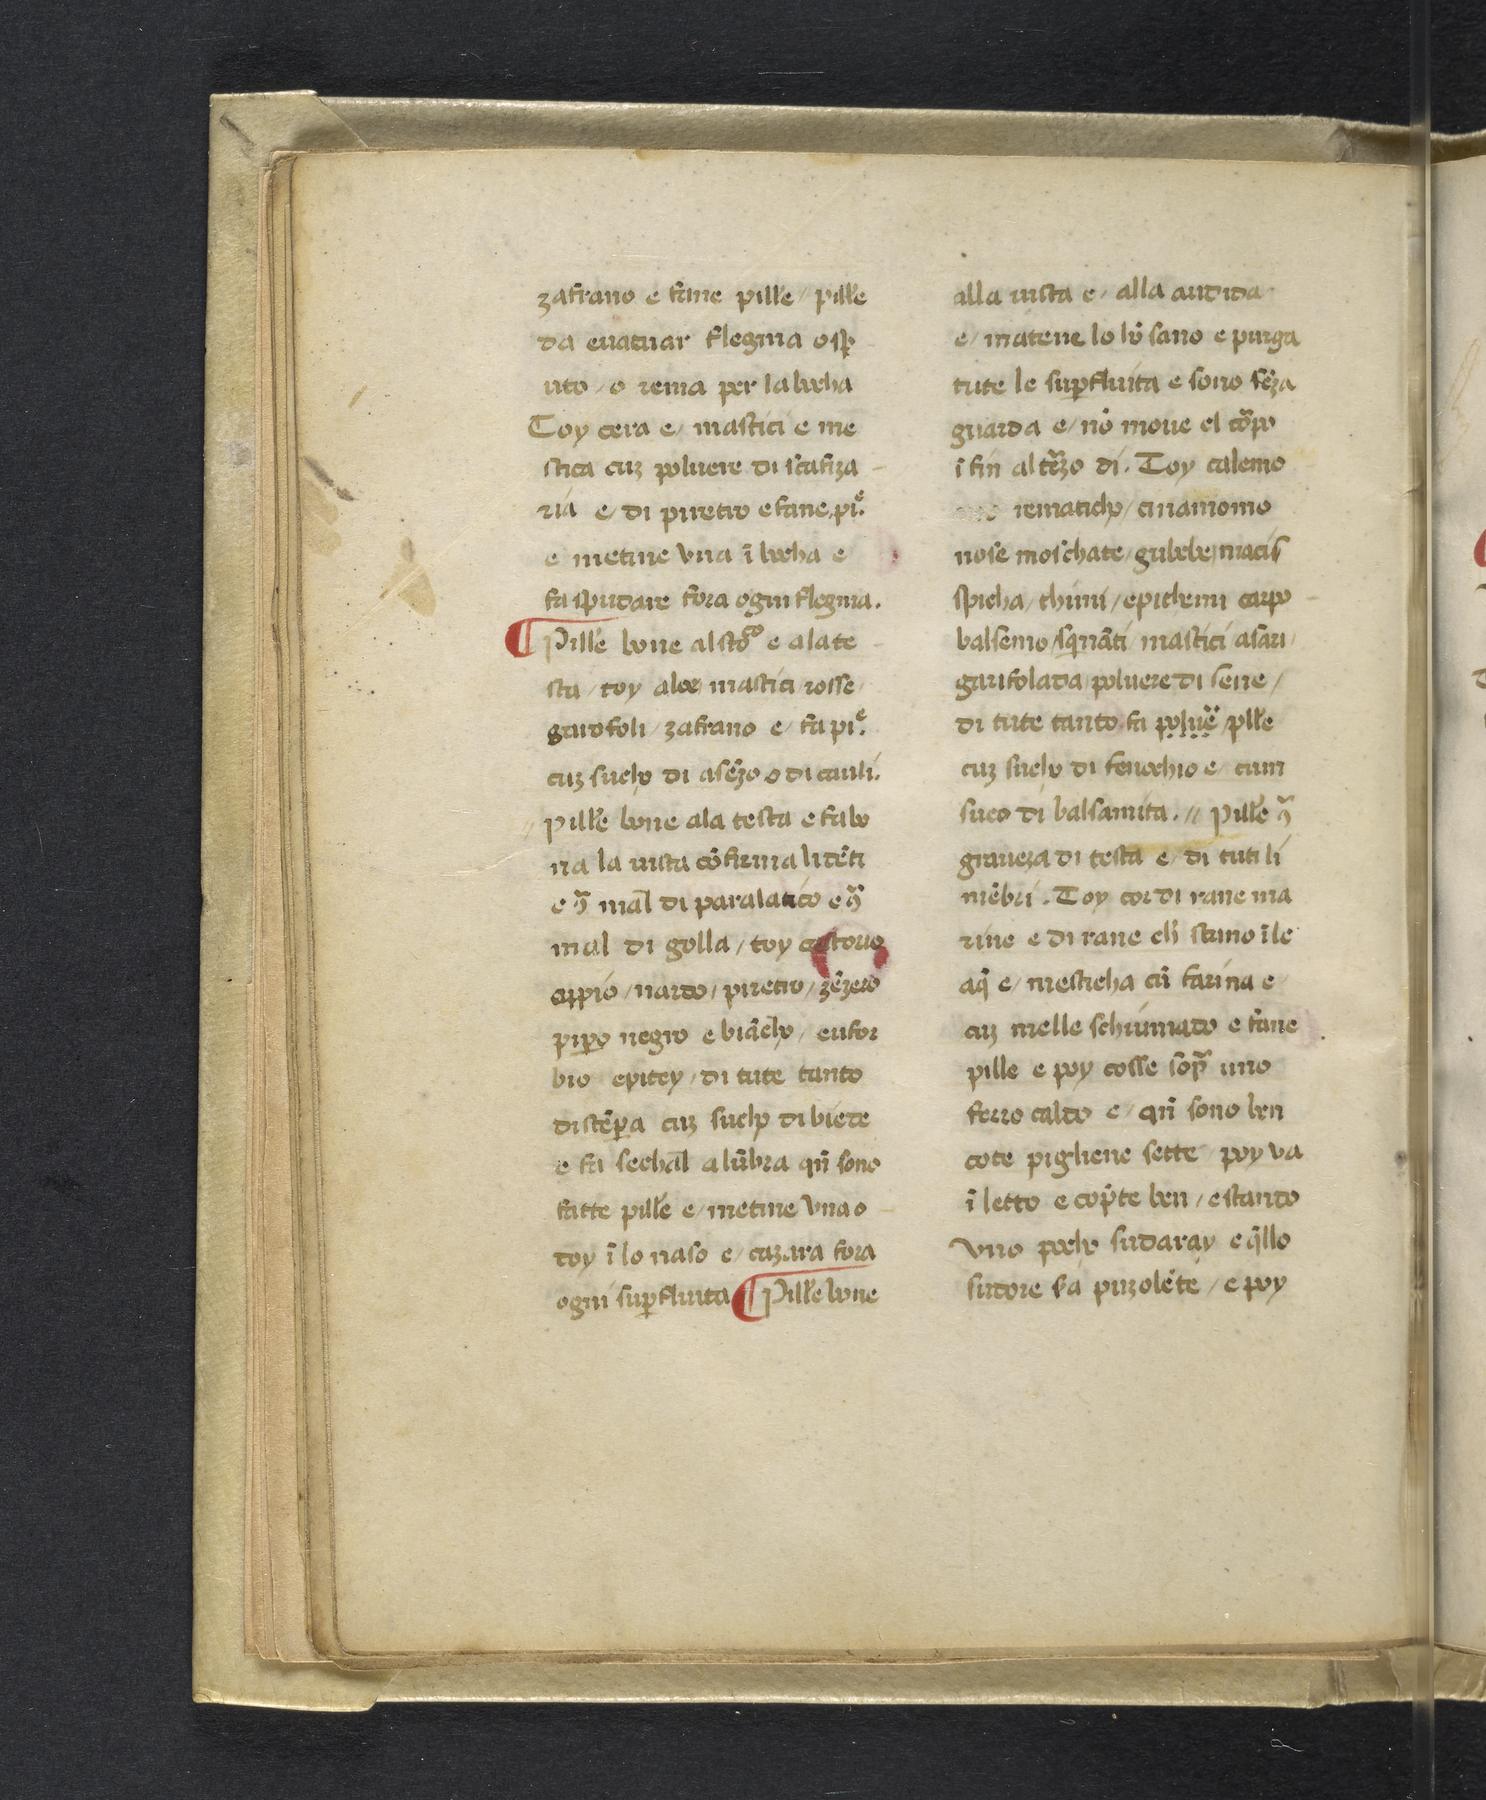 zafrano e fane pille / pille
da euacuar flegma o sp
uto / o rema per la bocha
Toy cera e / mastici e me
stica cuz poluere di stafiza
ria e / di piretro e fane pi.e
e metine vna ī bocha e
fa spudare fora ogni flegma.
¶ Pille bone al stōco e ala te
sta / toy aloe / mastici / rosse
garofoli / zafrano e / fa pi.e
cuz sucho di asēzo o di cauli.
// pille bone ala testa e fa bo
na la uista cōferma li dēti
e 9̄ mal di paralatico e 9̄
mal di golla / toy castorio
appio / nardo / piretro / zēzero
pipo negro e biācho / eufor
bio epitey / di tute tanto
distēpa cuz sucho di biede
e fa sechal a lūbra qn̄ sono
fatte pille e / metine vna o
doy ī lo naso e / cazara fora
ogni supfluita ¶ Pille bone
alla uista e / alla audida
e / mātene lo lō sano e purga
tute le supfluita e sono sēza
guarda e / nō moue el cōrpo
ī fin al tēzo di. Toy calemo
aromaticho / cinamomo
nose moschate / gubebe / macis
spicha / thimi / epithemi carpo
balsemo / sqnāti mastici asari
garifolada poluere di sene /
di tute tanto fa poluē / pille
cuz sucho di fenochio e / cum
suco di balsamita. // Pille 9̄
graueza di testa e / di tuti li
mēbri. Toy cor di rane ma
rine e di rane ch̄ stano ī le
aq̄ e / mesticha cū farina e /
cuz melle schiumado e fane
pille e poy cosse sōp̄ uno
ferro caldo e / qn̄ sono ben
cote pigliene sette poy va
ī letto e copte ben / e stando
vno pocho sudaray e q̄llo
sudore sā puzolēte / e poy